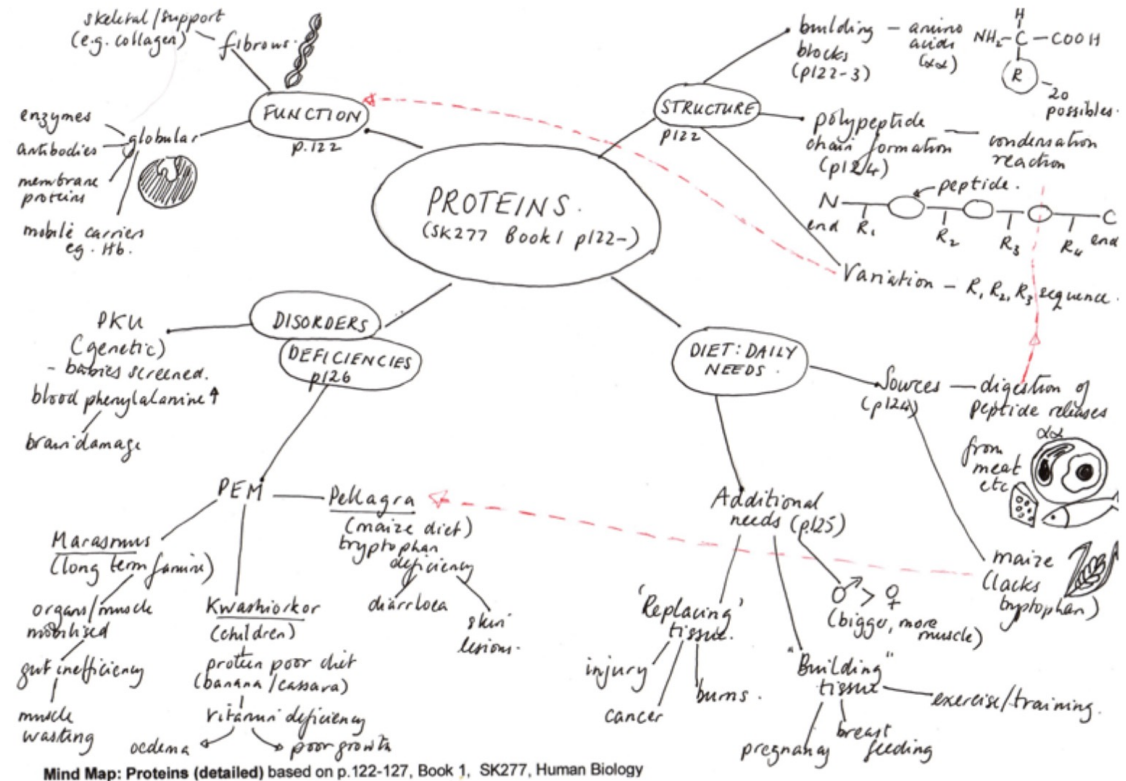 skeletal/support
(e.g. collagen)
fibrous.
FUNCTION
p.122
enzymes
antibodies
globular
membrane
proteins
mobile carriers
eg. Hb.
PROTEINS.
(SK277 Book 1 p122-)
STRUCTURE
p122
building
blocks
(p122-3)
amino
acids
(αα)
H
NH2 - C - COOH
R
20
possibles.
polypeptide
chain formation
(p124)
condensation
reaction
peptide.
N
end
R1
R2
R3
R4
C
end
Variation - R1 R2 R3 sequence.
DISORDERS
DEFICIENCIES
p126
PKU
(genetic)
- babies screened.
blood phenylalanine ↑
brain damage
PEM
Pellagra
(maize diet)
tryptophan
deficiency
diarrhoea
skin
lesions.
Marasmus
(long term famine)
organs/muscle
mobilised
gut inefficiency
muscle
wasting
Kwashiorkor
(children)
protein poor diet
(banana/cassava)
vitamin deficiency
oedema
poor growth
DIET: DAILY
NEEDS.
Sources
(p124)
digestion of
peptide releases
αα
from
meat
etc
maize
(lacks
tryptophan)
Additional
needs (p.125)
♂ > ♀
(bigger, more
muscle)
'Replacing'
tissue.
injury
cancer
burns.
"Building"
tissue
exercise/training.
pregnancy
breast
feeding
Mind Map: Proteins (detailed) based on p.122-127, Book 1, SK277, Human Biology